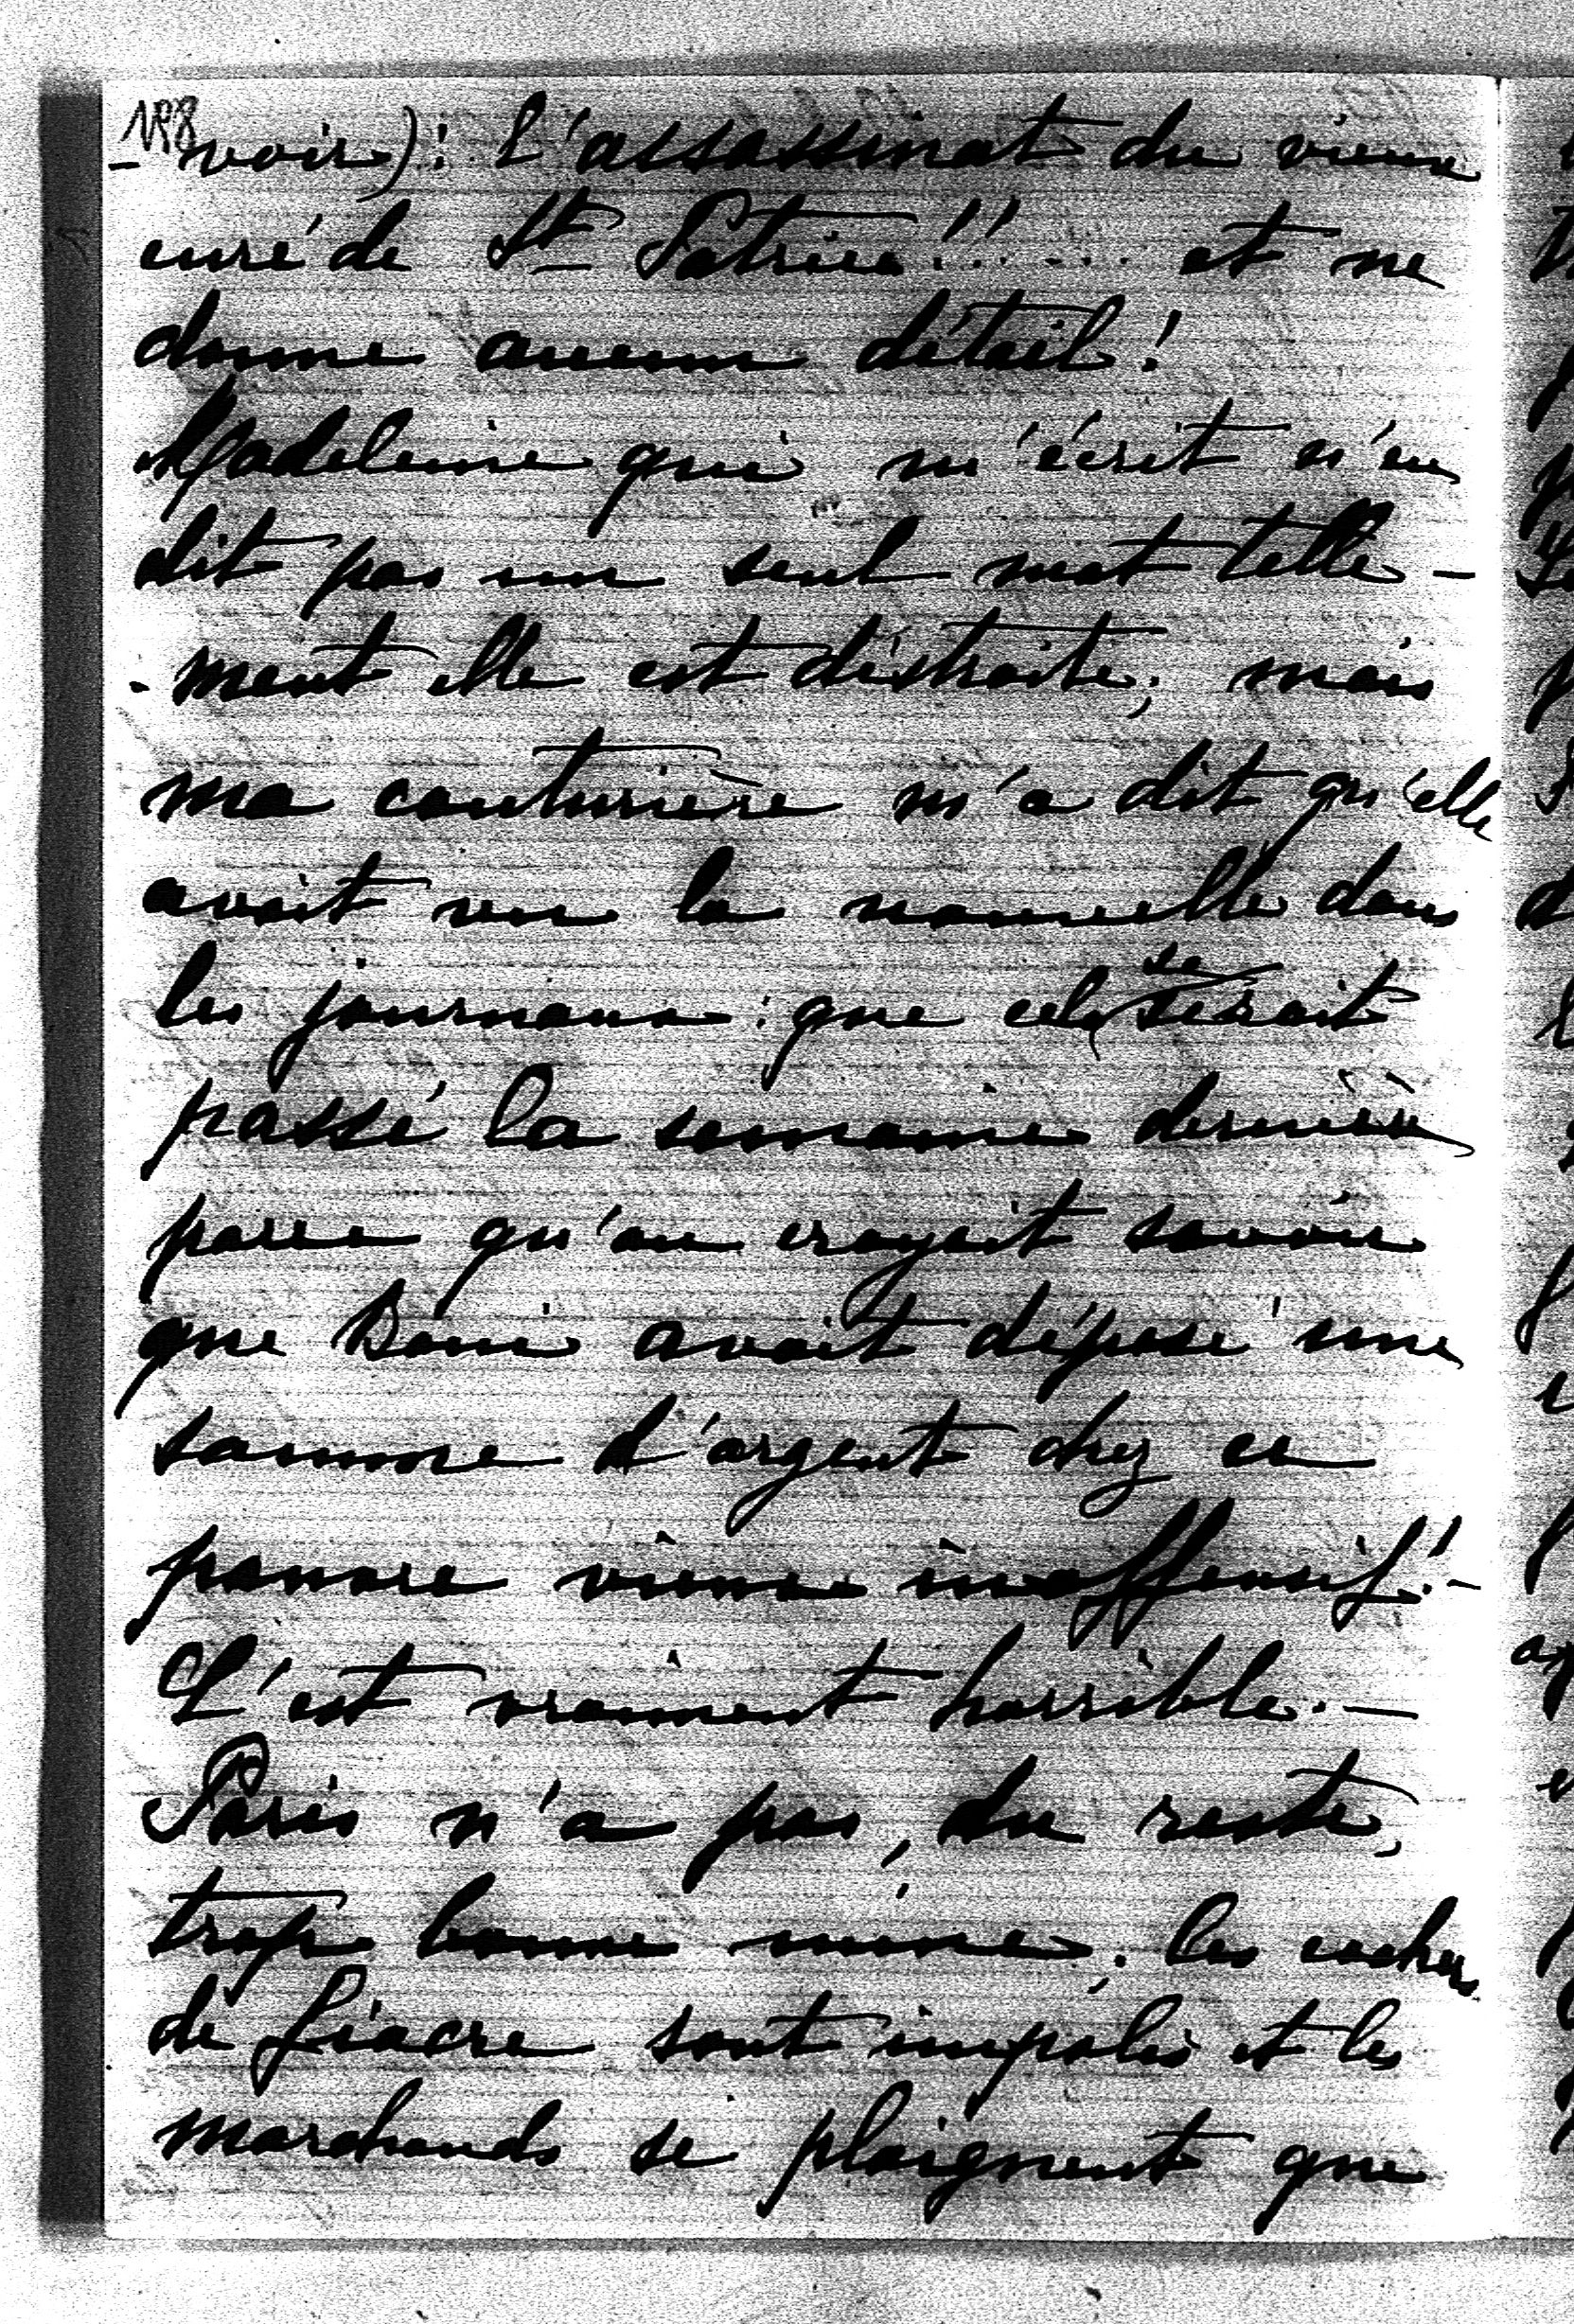 188
- voir) : L'assassinat du vieux
curé de St Patrice !!..... et ne
donne aucun détail !
Madeleine qui m'écrit n'en
dit pas un seul mot telle-
-ment elle est distraite; mais
ma couturière m'a dit qu'elle
avait vu la nouvelle dans
les journaux : que cela se serait
passé la semaine dernière
parce qu'on croyait savoir
que avait déposé une
somme d'argent chez ce
pauvre vieux inoffensif ! -
C'est vraiment horrible. -
Paris n'a pas, du reste,
trop bonne mine; les cochers
de fiacre sont impolis et les
marchands se plaignent que